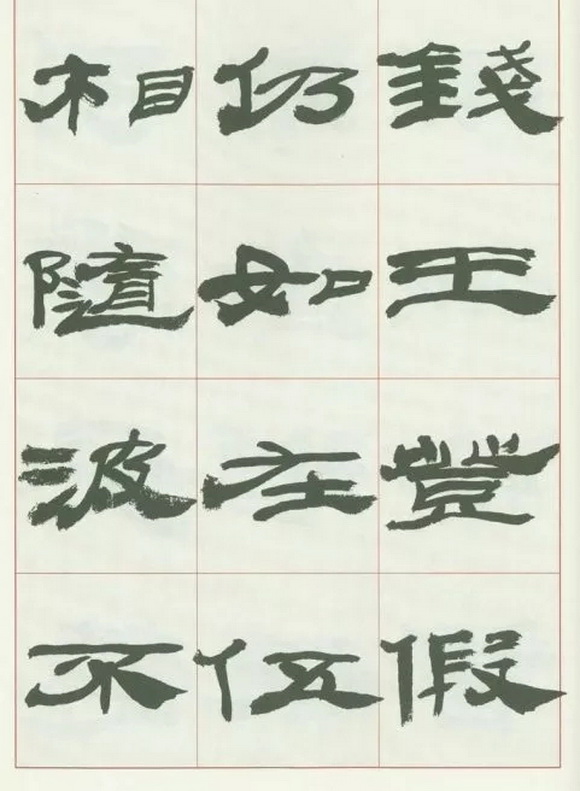 錢王登假
仍如在伍
相隨波不